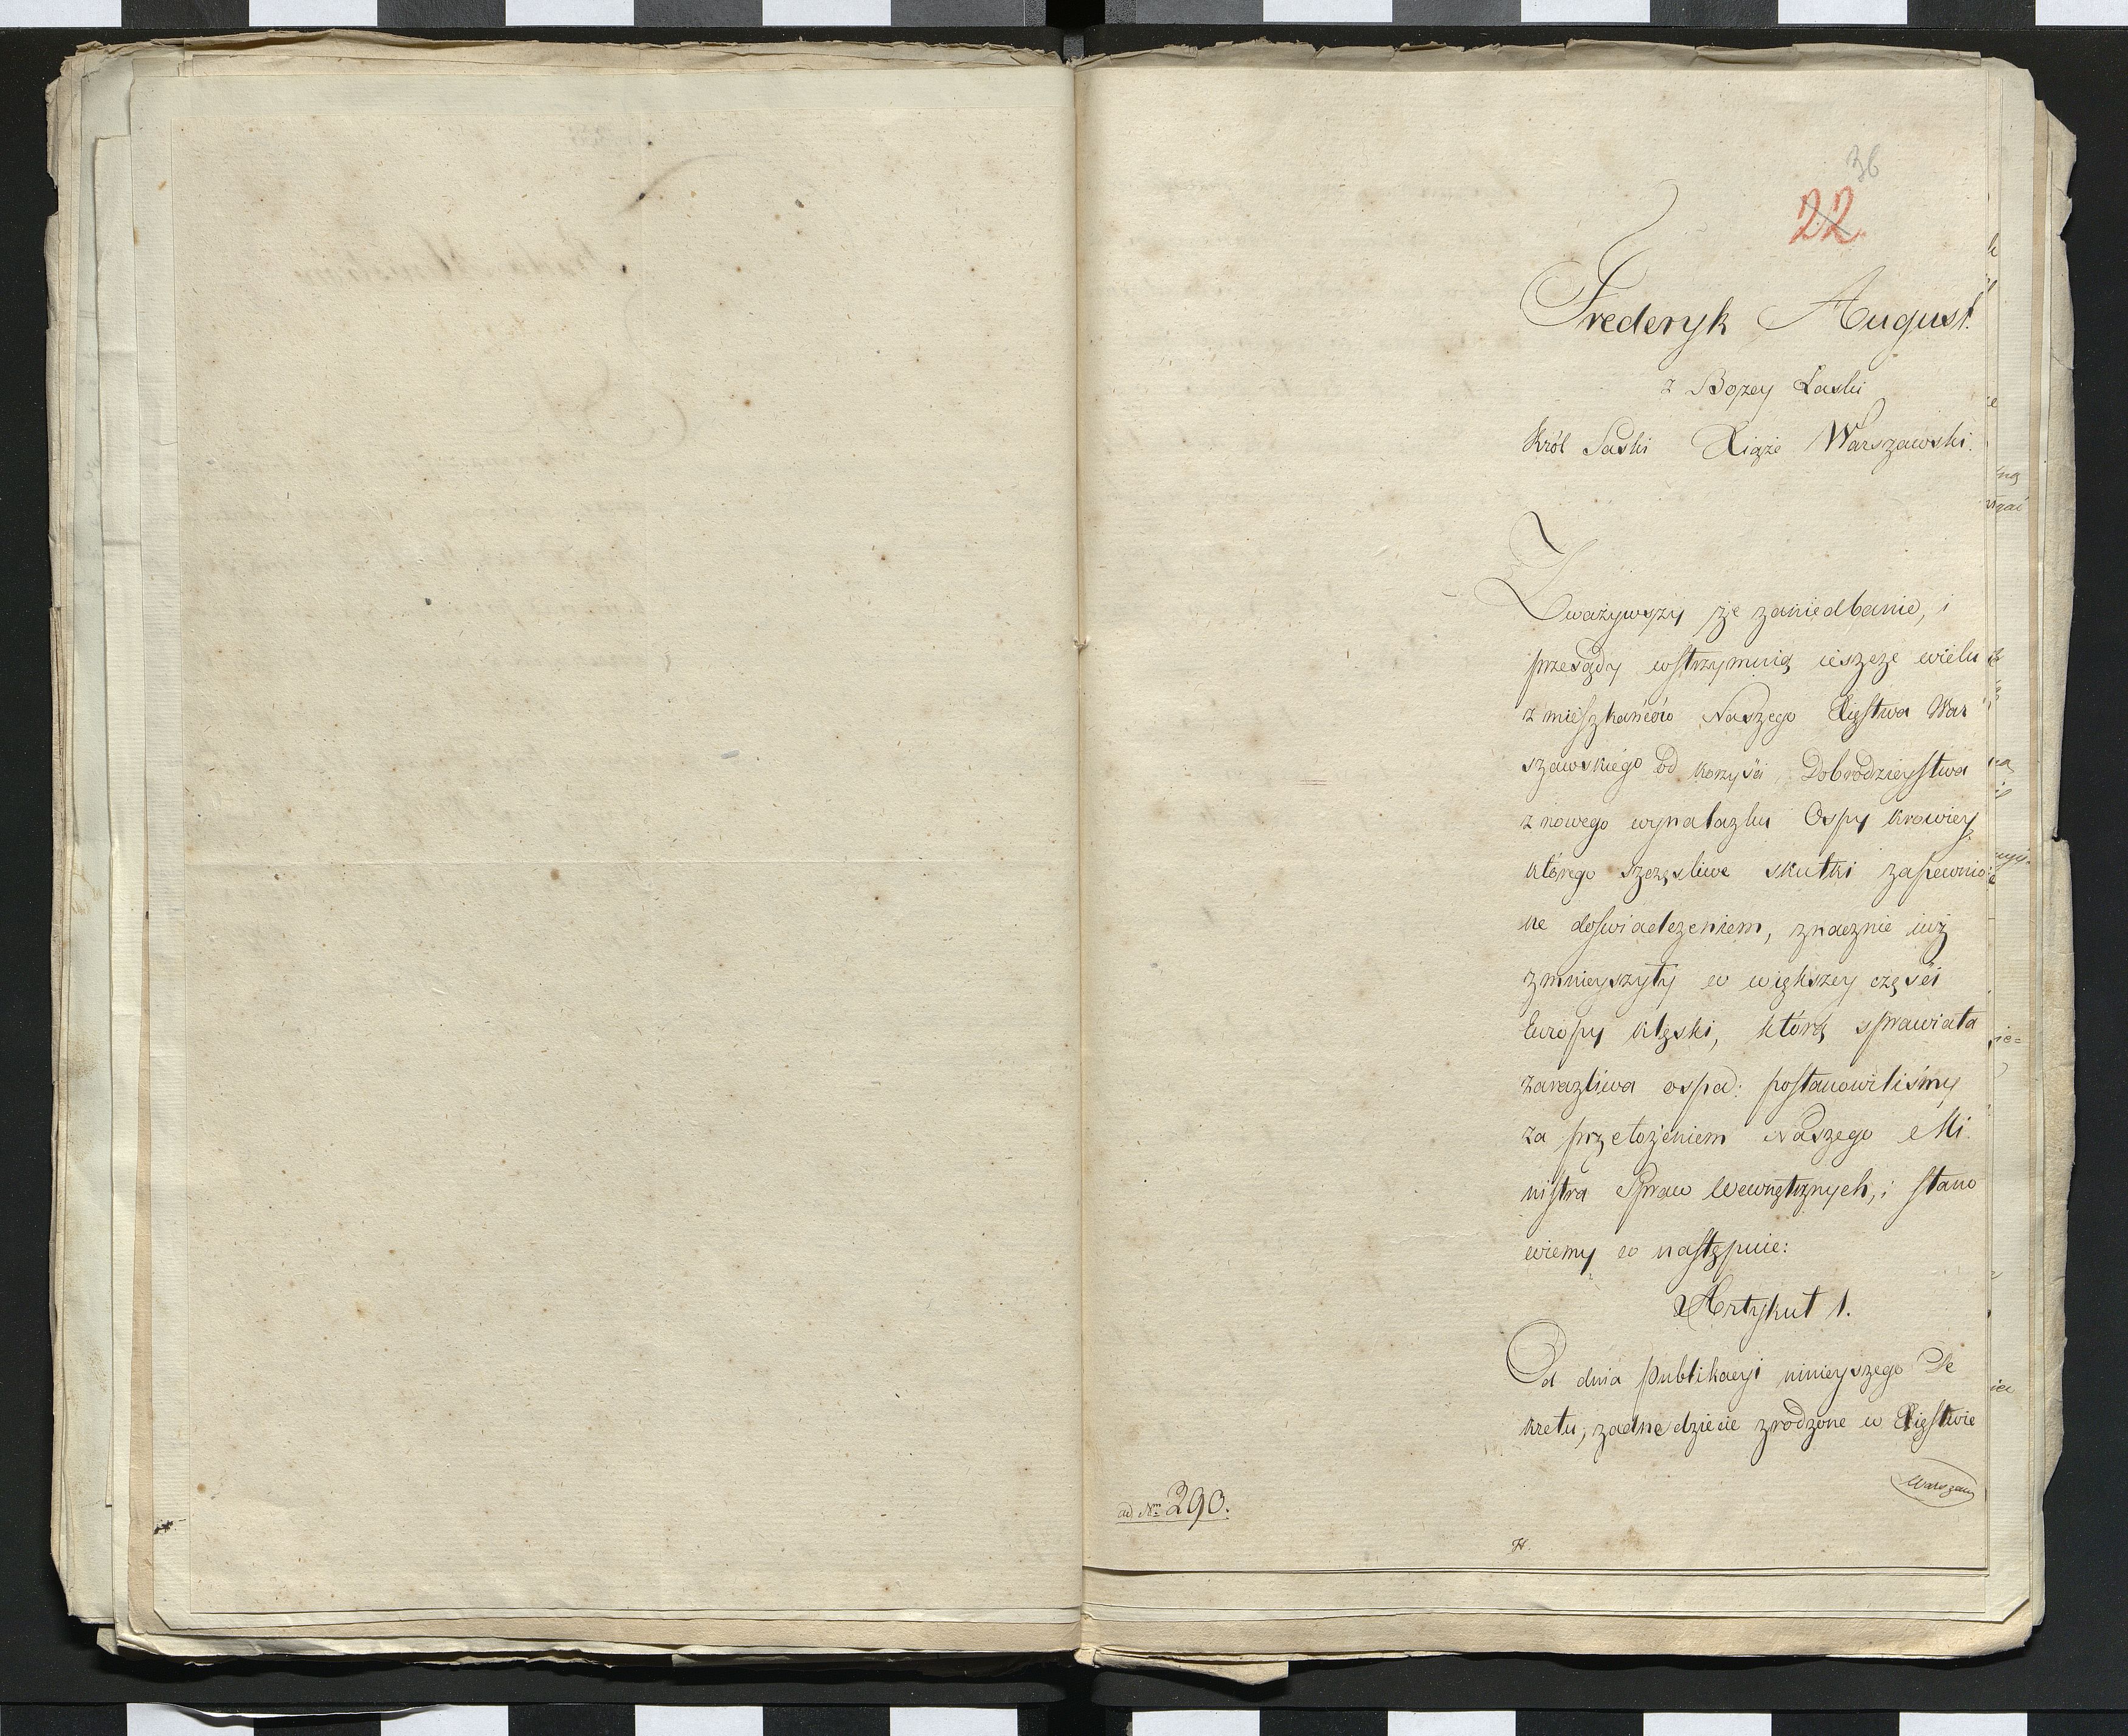 36
22
Frederyk August.
z Bożey Łaski
Król Saski Xiąże Warszawski.
Zważywszy że zaniedbanie, i
przesądy wstrzymuią ieszcze wielu
z mieszkańców Naszego Xięstwa War
szawskiego od korzyści, Dobrodzieystwa
z nowego wynalazku Ospy krowiey,
którego szczęsliwe skutki zapewnio
ne doswiadczeniem, znacznie iuż
zmnieyszyły w większey części
Europy klęski, którą sprawiała
zarazliwa ospa: postanowiliśmy
za przełożeniem Naszego Mi.
nistra Spraw Wewnętrznych, i stano
wiemy co następuie:
Artykuł 1.
Od dnia publikacyi ninieyszego De
kretu, zadne dziecie zrodzone w Xięstwie
Warszaw
ad Nm 290.